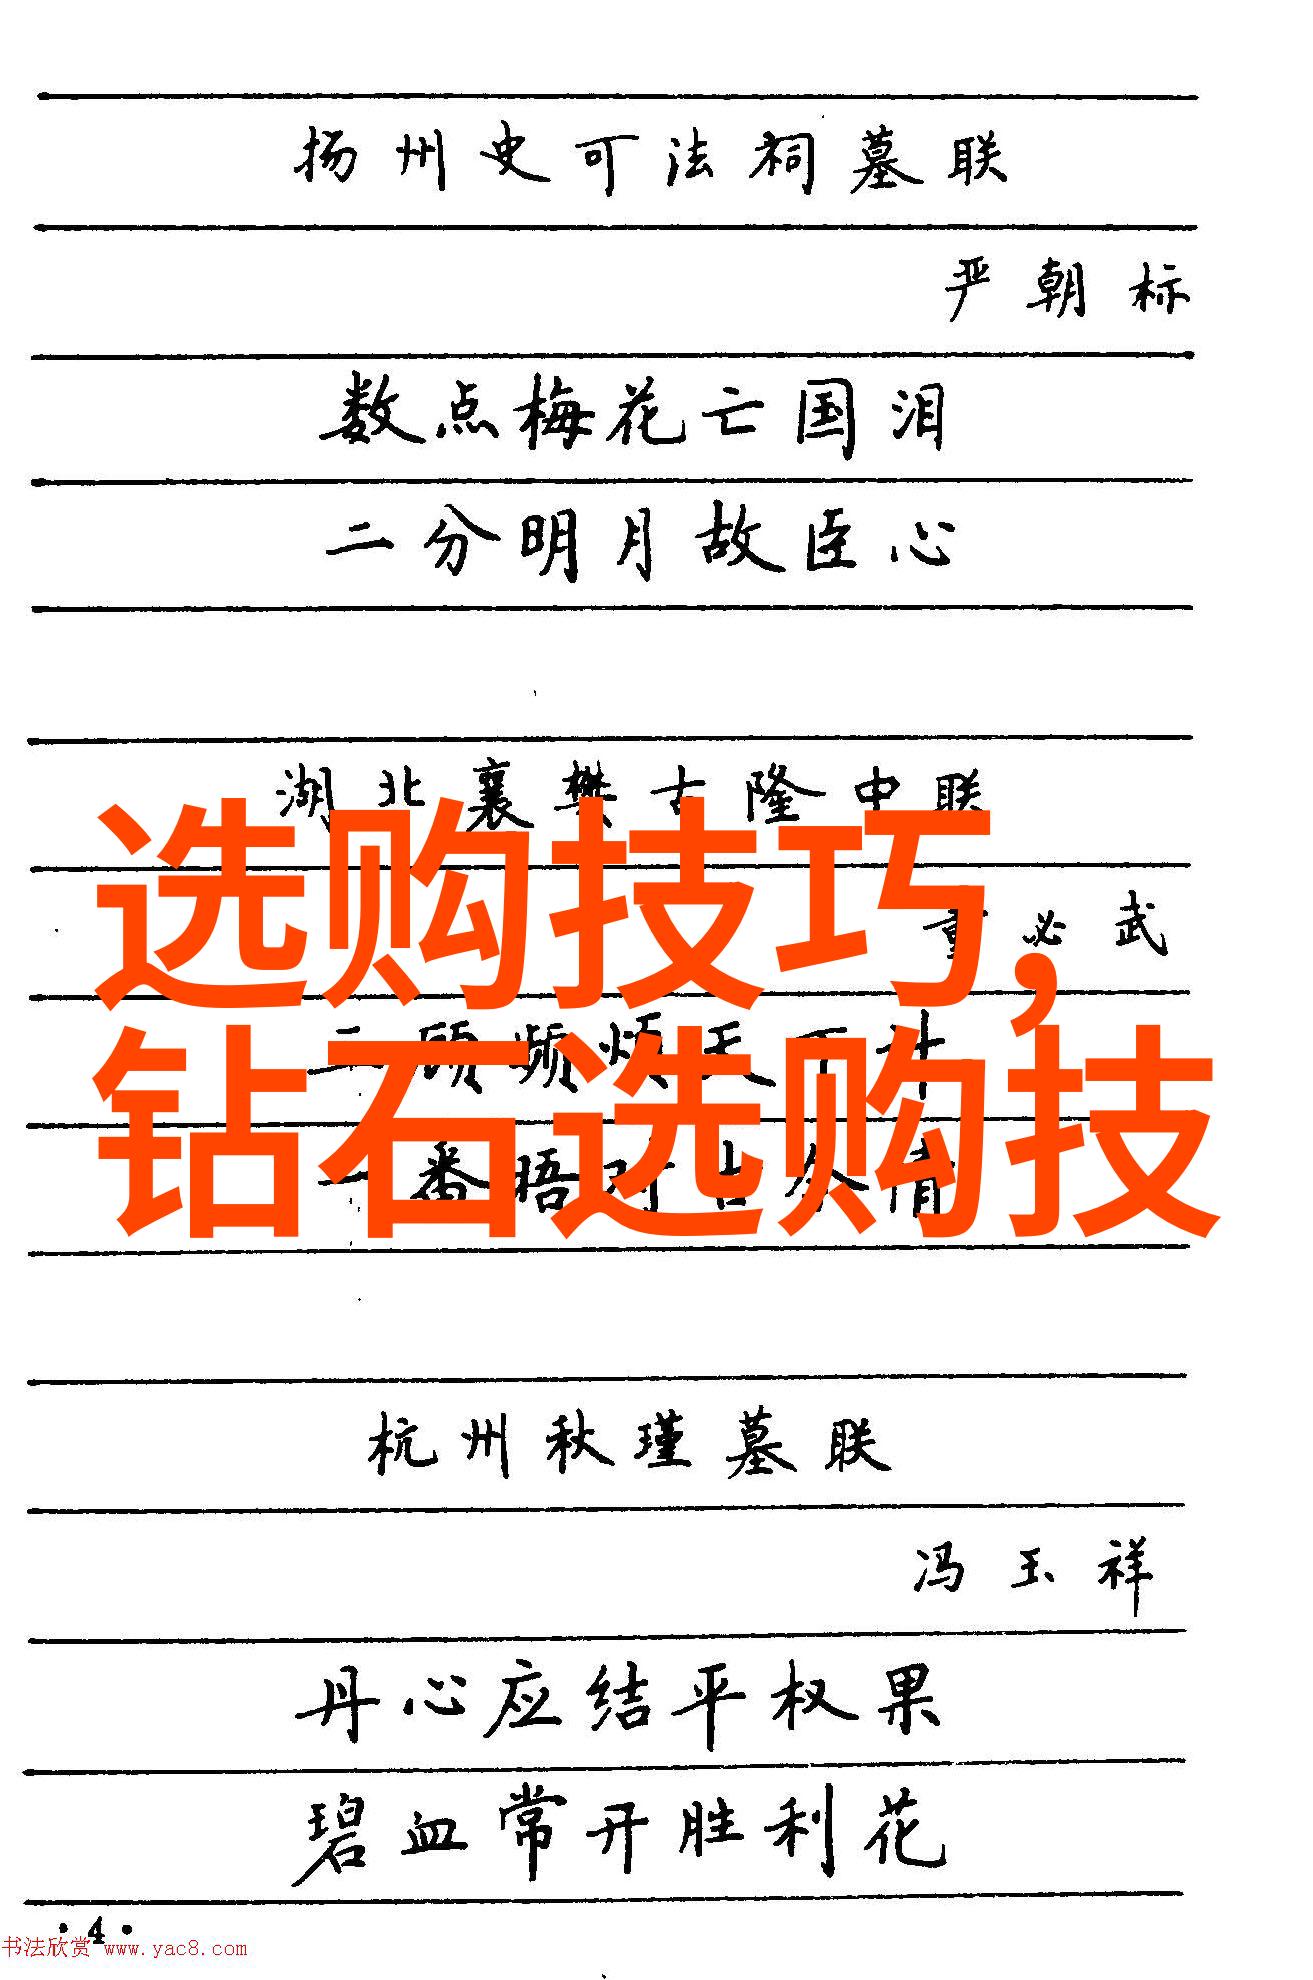 扬州史可法祠墓联
严朝标
数点梅花亡国泪
二分明月故臣心
湖北襄樊古隆中联
董必武
选购技巧,
三顾频烦天下计
钻石选购技
一番晤对古今情
杭州秋瑾墓联
冯玉祥
丹心应结平权果
碧血常开胜利花
·4·
书法欣赏 www.yac8.com